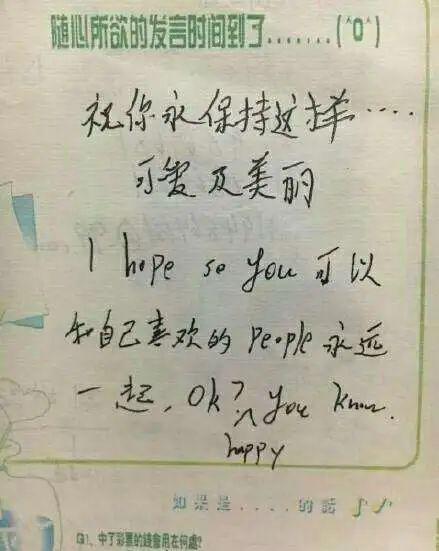 随心所欲的发言时间到了.......(^O^)
祝你永保持这样....
可爱及美丽
I hope so you 可以
和自己喜欢的 people 永远
一起, Ok? you know.
happy
如果是....的話
Q1、中了彩票的錢會用在何處?